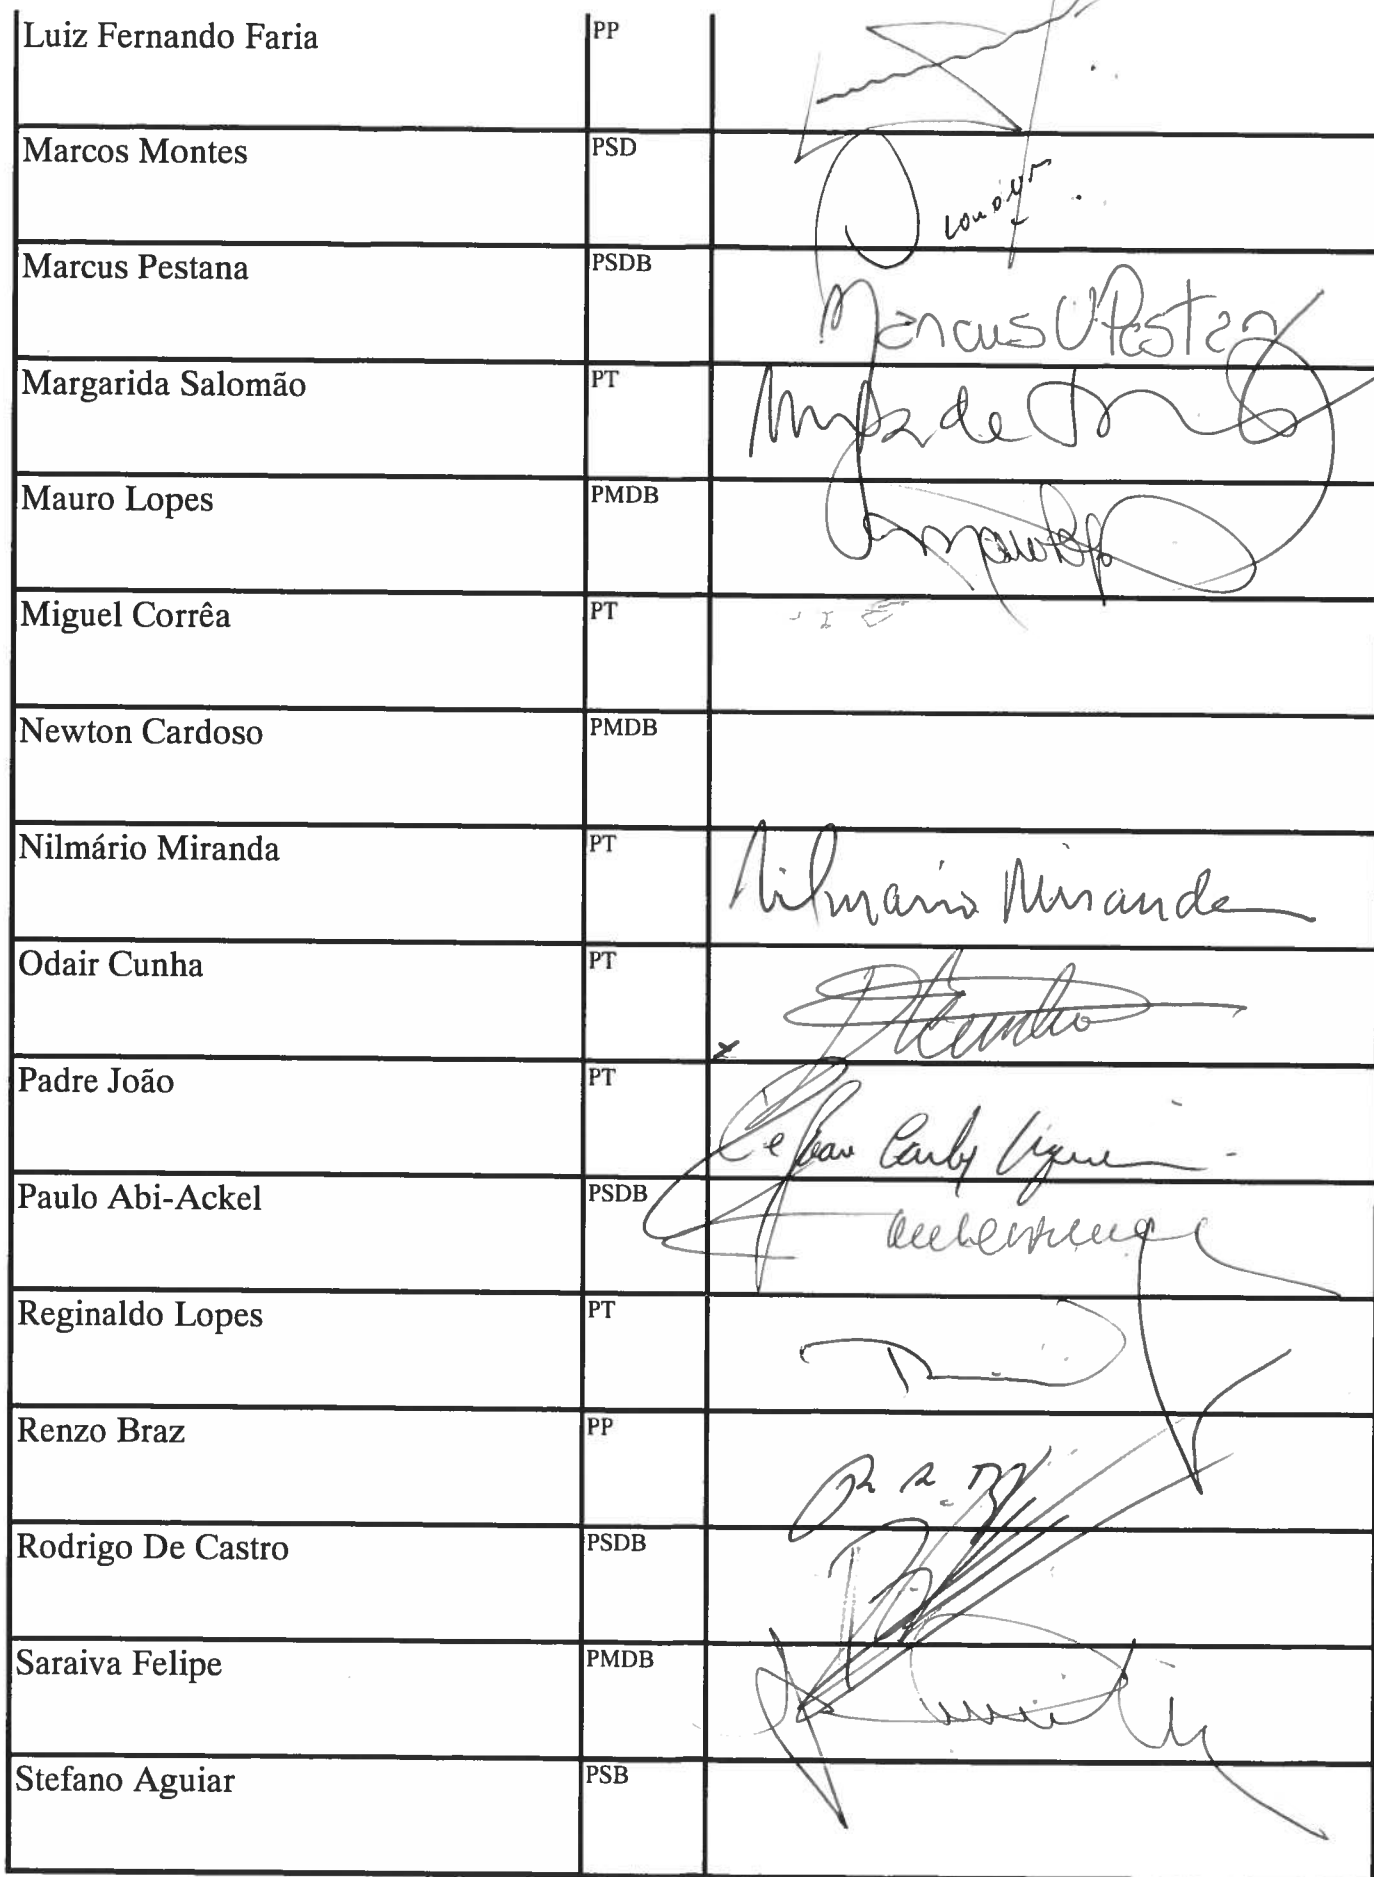 Luiz Fernando Faria PP
Marcos Montes PSD
Marcus Pestana PSDB Marcus Pestana
Margarida Salomão PT
Mauro Lopes PMDB
Miguel Corrêa PT
Newton Cardoso PMDB
Nilmário Miranda PT Nilmário Miranda
Odair Cunha PT
Padre João PT
Paulo Abi-Ackel PSDB
Reginaldo Lopes PT
Renzo Braz PP
Rodrigo De Castro PSDB
Saraiva Felipe PMDB
Stefano Aguiar PSB